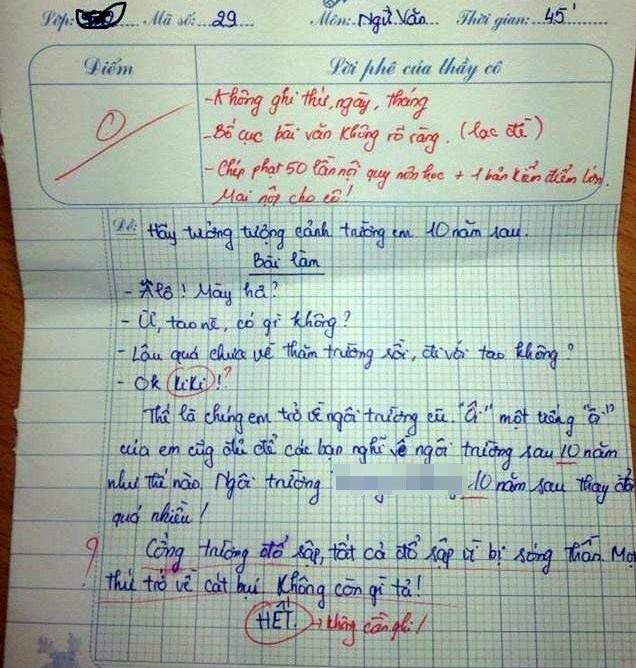 Lớp: Mã số: 29 Môn: Ngữ Văn Thời gian: 45'
Điểm Lời phê của thầy cô
- Không ghi thứ, ngày, tháng
- Bố cục bài văn không rõ ràng. (lạc đề)
- Chép phạt 50 lần nội quy môn học + 1 bản kiểm điểm lớn.
Mai nộp cho cô!
Đề: Hãy tưởng tượng cảnh trường em 10 năm sau.
Bài làm
- Álô! Mày hả?
- Ừ, tao nè, có gì không?
- Lâu quá chưa về thăm trường rồi, đi với tao không?
- Ok KiKi!?
Thế là chúng em trở về ngôi trường cũ. "Ôi" một tiếng "ôi"
của em cũng đủ để các bạn nghĩ về ngôi trường sau 10 năm
như thế nào. Ngôi trường 10 năm sau thay đổi
quá nhiều!
? Cổng trường đổ sập, tất cả đổ sập vì bị sóng thần. Mọi
thứ trở về cát bụi. Không còn gì tả!
HẾT. → không cần ghi!